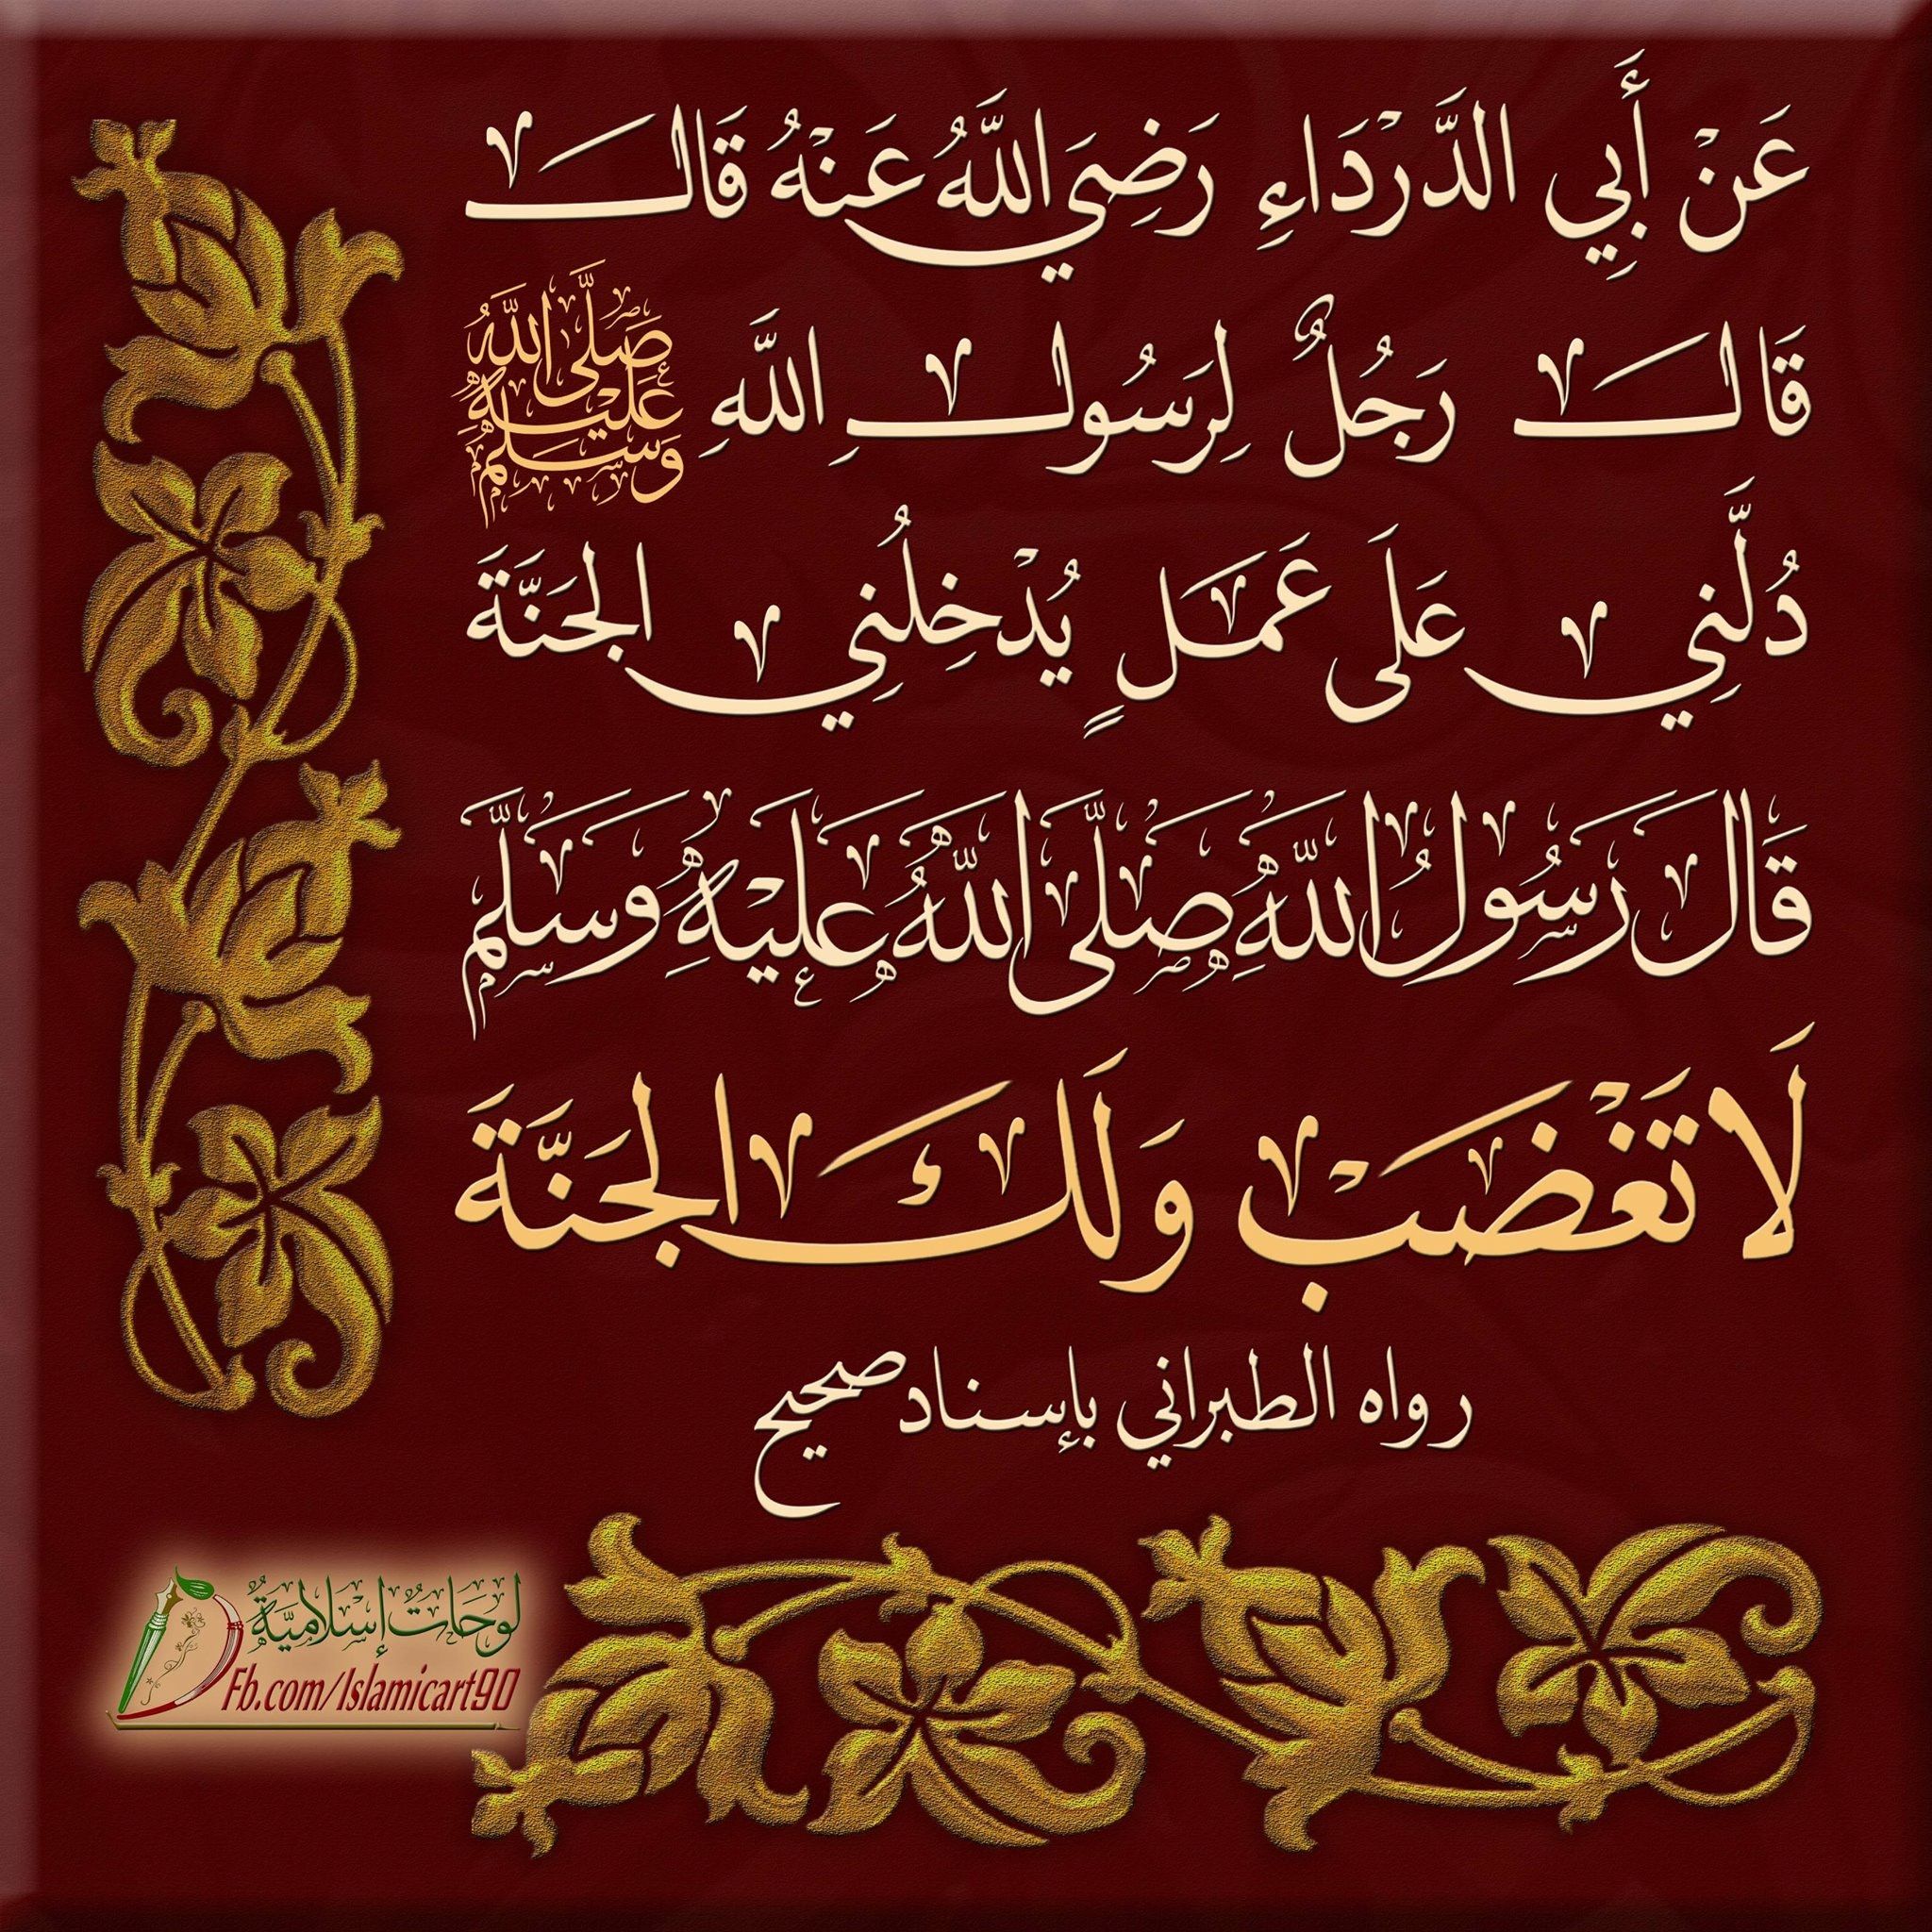 عَنْ أَبِي الدَّرْدَاءِ رَضِيَ اللَّهُ عَنْهُ قَالَ
قَالَ رَجُلٌ لِرَسُولِ اللَّهِ صَلَّى اللَّهُ عَلَيْهِ وَسَلَّمَ
دُلَّنِي عَلَى عَمَلٍ يُدْخِلُنِي الْجَنَّةَ
قَالَ رَسُولُ اللَّهِ صَلَّى اللَّهُ عَلَيْهِ وَسَلَّمَ
لَا تَغْضَبْ وَلَكَ الْجَنَّةَ
رواه الطبراني بإسناد صحيح
لوحات إسلامية
Fb.com/Islamicart90